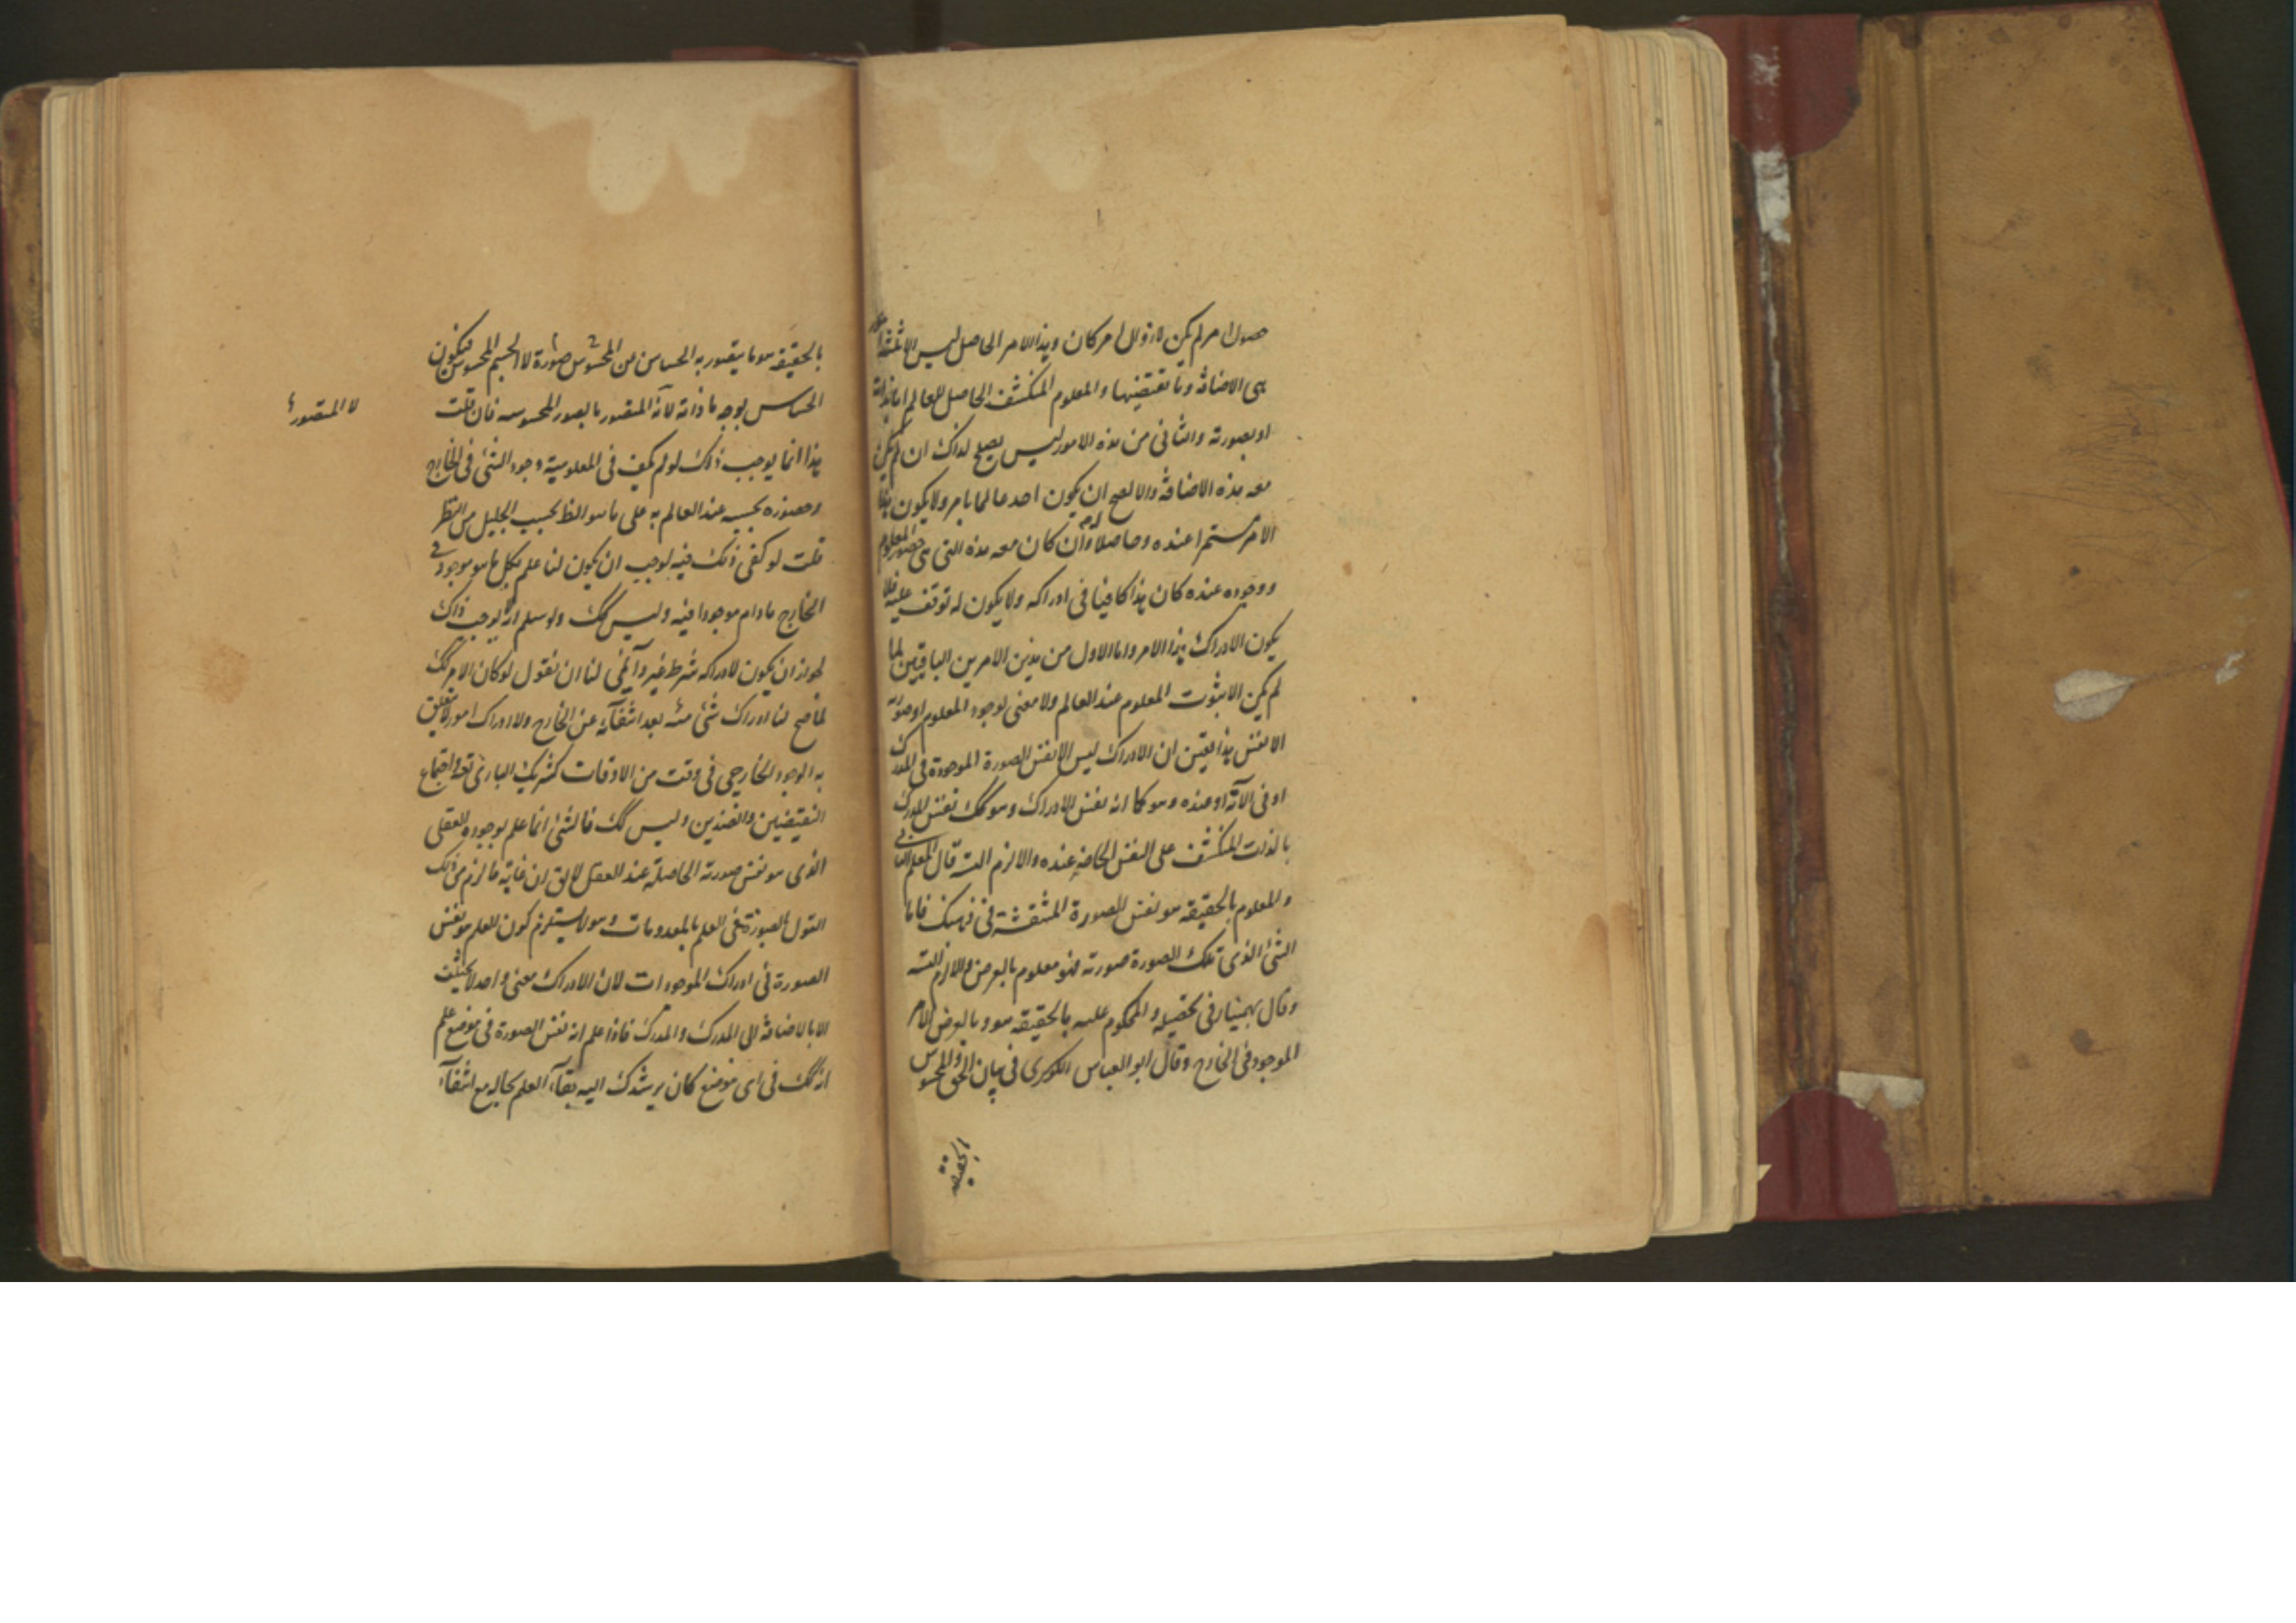 حصول امر لم يكن لا زوال امر كان وهذا الامر الحاصل ليس الا
هى الاضافة وما تقتضيها والمعلوم المنكشف الحاصل للعالم اما بذاته
او بصورته والثانى من هذه الامور ليس يصلح لذاك ان لم يكن
معه هذه الاضافة والا لصح ان يكون احد عالما بامر ولا يكون هذا
الامر مستمرا عنده وحاصلا له وان كان معه هذه التى هى حضور المعلوم
ووجوده عنده كان هذا كافيا فى ادراكه ولا يكون له توقف عليه فلا
يكون الادراك هذا الامر واما الاول من هذين الامرين الباقيين لما
لم يكن الا ثبوت المعلوم عند العالم ولا معنى لوجود المعلوم او صورته
الا نفس هذا يقين ان الادراك ليس الا نفس الصورة الموجودة فى المدرك
او فى الآلة او عنده وهو كما انه نفس الادراك وهو كك نفس المدرك
بالذات المنكشف على النفس الحاضر عنده والا لزم الت قال المعلم الثانى
والمعلوم بالحقيقة هو نفس الصورة المنتقشة فى ذهنك فاما
الشئ الذى تلك الصورة صورته فهو معلوم بالعرض والا لزم الت
وقال بهمنيار فى تحصيله والمحكوم عليه بالحقيقة هو وبالعرض الامر
الموجود فى الخارج وقال ابو العباس اللوكرى فى بيان الحق والمحسوس
بالحقيقة
بالحقيقة هو ما يتصور به الحساس من المحسوس صورة لا الجسم المحسوس فيكون
الحساس بوجه ما ذاته لانه المتصور بالصور المحسوسه فان قلت
لا المتصورة
هذا انما يوجب ذلك لو لم يكف فى المعلومية وجود الشئ فى الخارج
وحضوره بحسبه عند العالم به على ما هو الظ بحسب الجليل من النظر
قلت لو كفى ذلك فيه لوجب ان يكون لنا علم بكل ما هو موجود فى
الخارج مادام موجودا فيه وليس كك ولو سلم انه لا يوجب ذاك
لجواز ان يكون لادراكه شرط غير وآلمى لنا ان نقول لو كان الامر كك
لما صح لنا ادراك شئ منه بعد انتفآئه عن الخارج ولا ادراك امور لا تتعلق
به الوجود الخارجى فى وقت من الاوقات كشريك البارى تعه واجتماع
النقيضين والضدين وليس كك فالشئ انما علم بوجوده العقلى
الذى هو نفس صورته الحاصلة عند العقل لا يق ان غاية ما لزم من ذلك
القول بالصورة فى العلم بالمعدومات وهو لا يستلزم كون العلم هو نفس
الصورة فى ادراك الموجودات لان الادراك معنى واحد لا يختلف
الا بالاضافة الى المدرك والمدرك فاذا علم انه نفس الصورة فى موضع علم
انه كك فى اى موضع كان يرشدك اليه بقآء العلم بحاله مع انتفآء